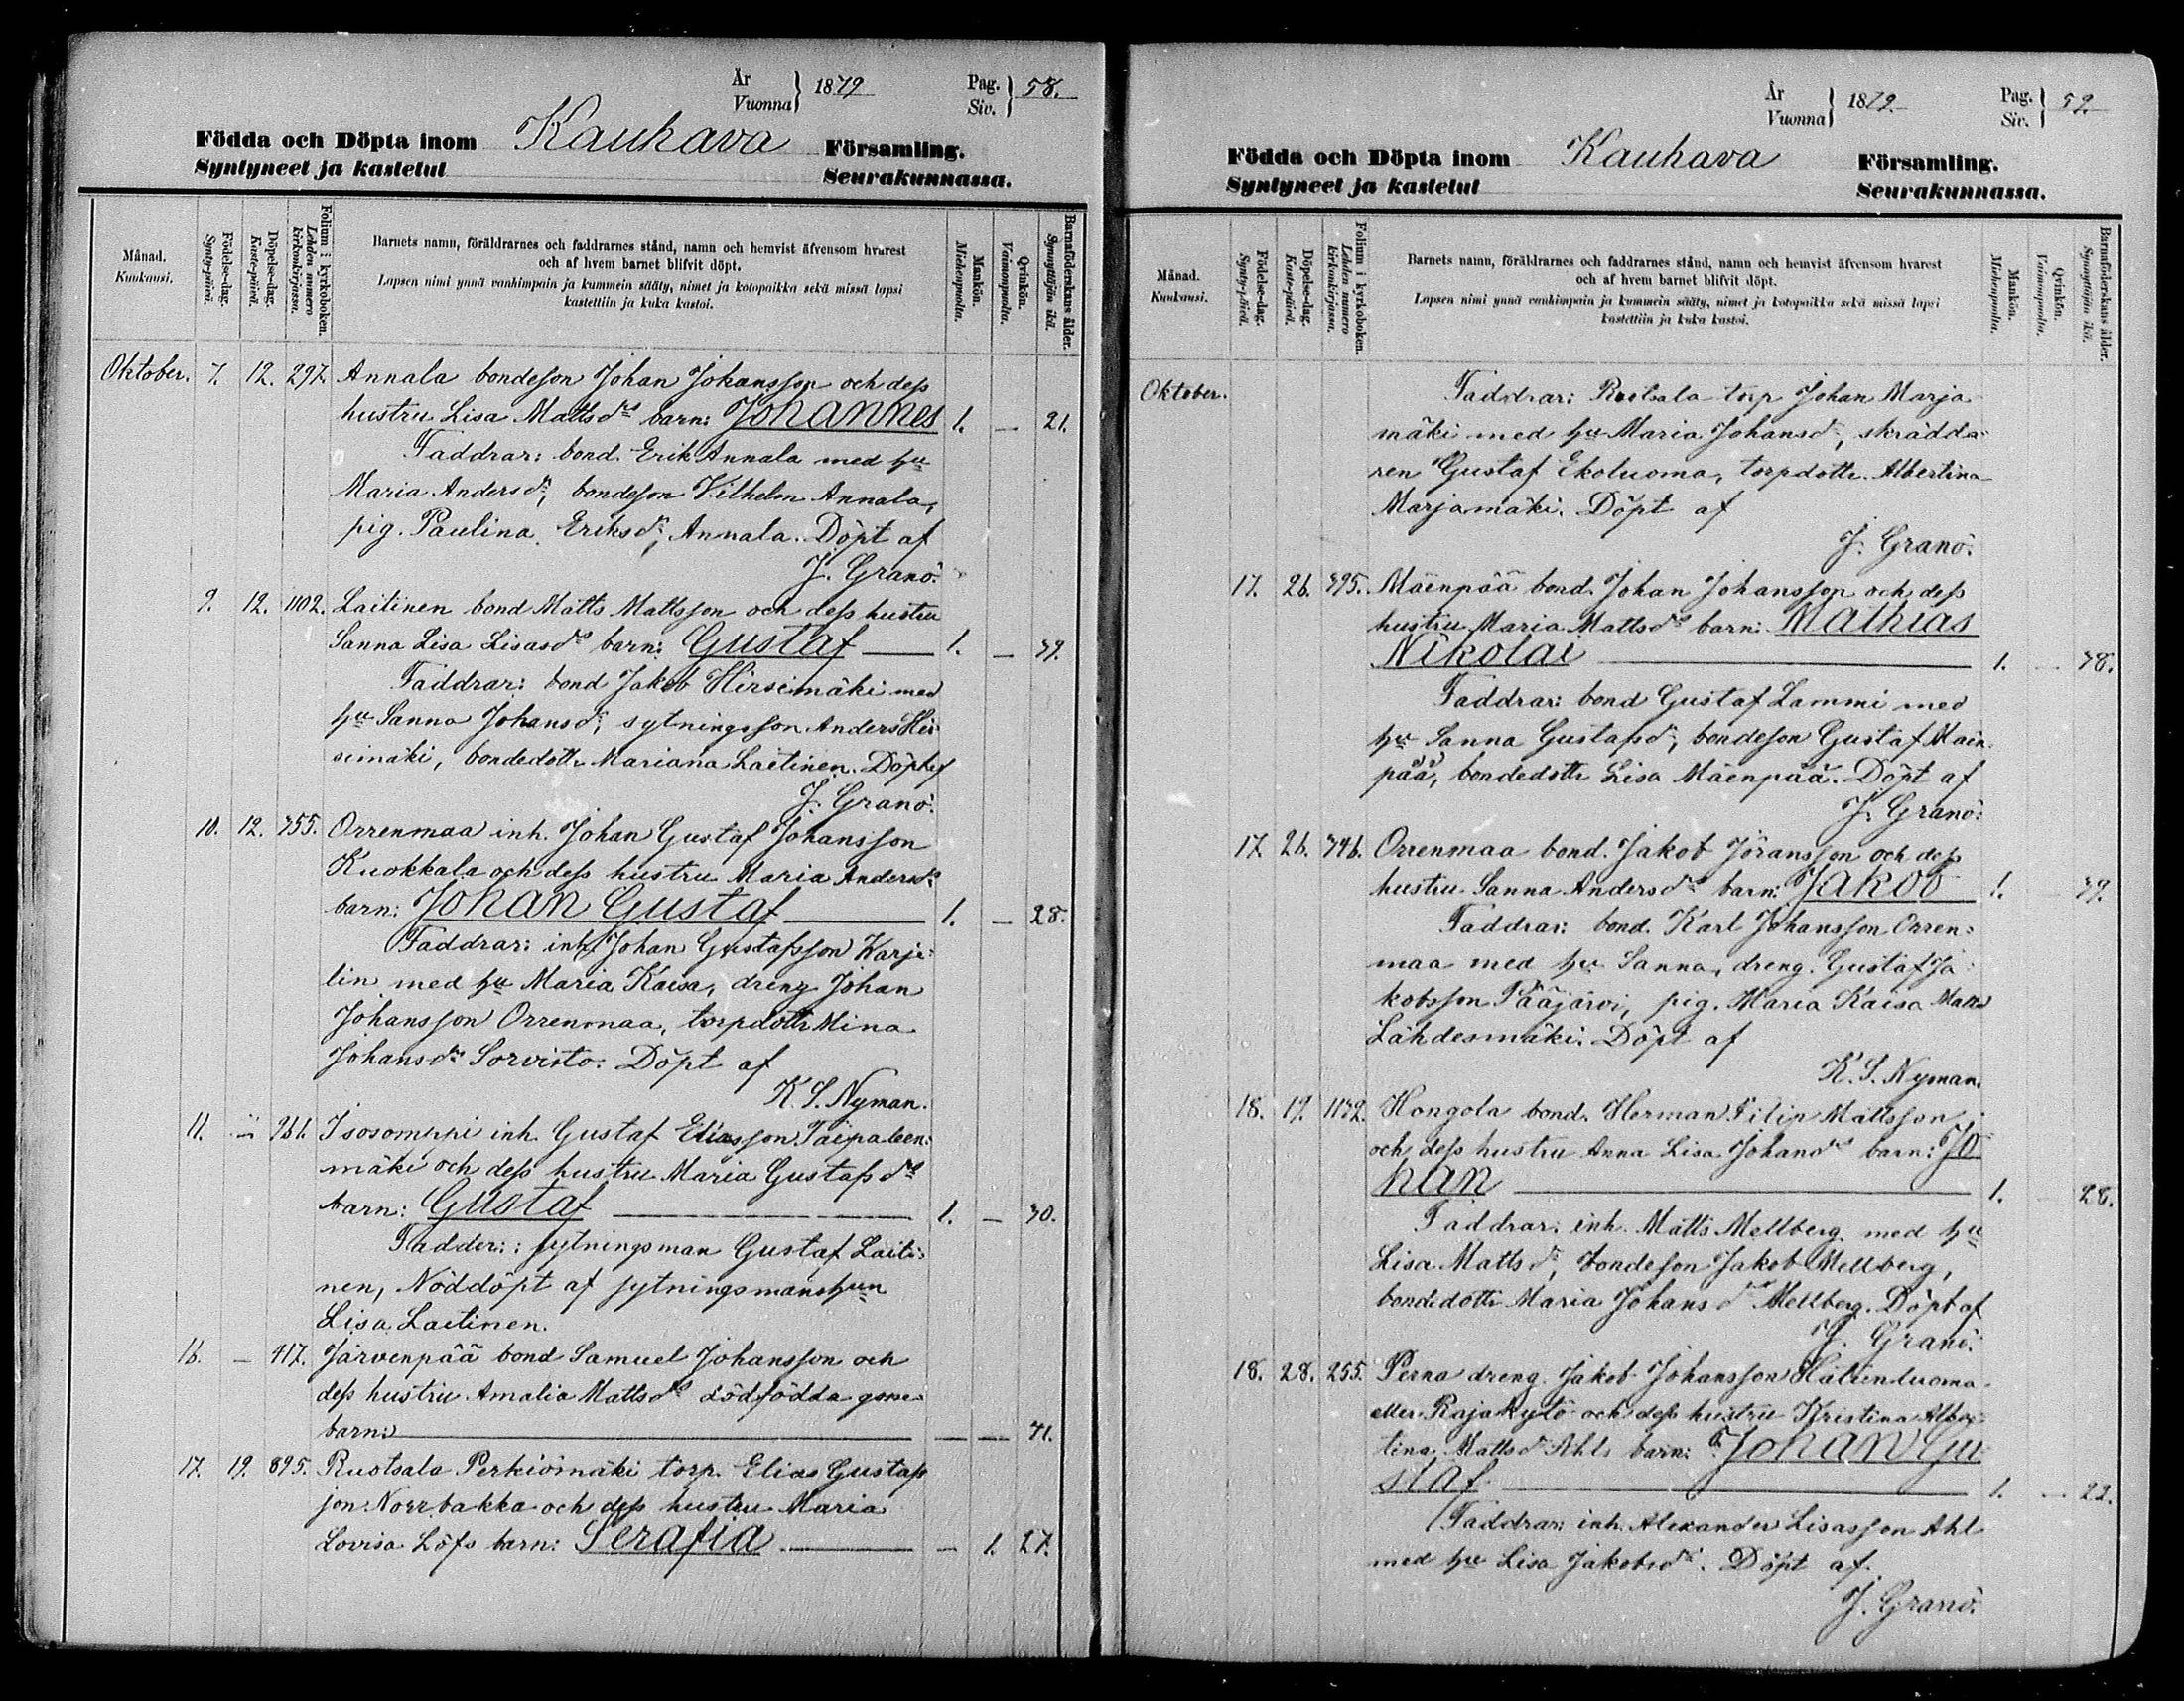 År
Vuonna
1879
Pag.
Siv.
58.
Födda och Döpta inom Kauhava Församling.
Syntyneet ja kastetut Seurakunnassa.
Månad.
Kuukausi.
Födelse-dag.
Synty-päivä.
Döpelse-dag.
Kaste-päivä.
Folium i kyrkoboken.
Lehden numero kirkonkirjassa.
Barnets namn, föräldrarnes och faddrarnes stånd, namn och hemvist äfvensom hvarest
och af hvem barnet blifvit döpt.
Lapsen nimi ynnä vanhimpain ja kummein sääty, nimet ja kotopaikka sekä missä lapsi
kastettiin ja kuka kastoi.
Mankön.
Miehenpuolta.
Qvinkön.
Vaimonpuolta.
Barnaföderskans ålder.
Synnyttäjän ikä.
Oktober. 7. 12. 297. Annala bondeson Johan Johansson och dess
hustru Lisa Mattsdr barn: Johannes 1. — 21.
Faddrar: bond. Erik Annala med hu
Maria Andersdr, bondeson Vilhelm Annala,
pig. Paulina Eriksdr, Annala. Döpt af
J. Granö.
9. 12. 1102. Laitinen bond Matts Mattsson och dess hustru
Sanna Lisa Lisasdr barn: Gustaf — 1. — 39.
Faddrar: bond Jakob Hirsimäki med
hu Sanna Johansdr, sytningsson Anders Hir
simäki, bondedottr Mariana Laitinen. Döpt af
J. Granö.
10. 12. 755. Orrenmaa inh. Johan Gustaf Johansson
Kuokkala och dess hustru Maria Andersdr
barn: Johan Gustaf — 1. — 28.
Faddrar: inh Johan Gustafsson Karje:
lin med hu Maria Kaisa, dreng Johan
Johansson Orrenmaa, torpdottr Mina
Johansdr Sorvisto. Döpt af
K. S. Nyman.
11. — 961. Isosomppi inh. Gustaf Eliasson Taipaleen:
mäki och dess hustru Maria Gustafsdr
barn: Gustaf — 1. — 30.
Fadder: sytningsman Gustaf Laiti:
nen, Nöddöpt af sytningsmanshun
Lisa Laitinen.
16. — 417. Järvenpää bond Samuel Johansson och
dess hustru Amalia Mattsdr dödfödda gosse-
barn: — — — 41.
17. 19. 895. Ruotsala Perkiömäki torp. Elias Gustafs
son Norrbakka och dess hustru Maria
Lovisa Löfs barn: Serafia — — 1. 27.
År
Vuonna
1879.
Pag.
Siv.
59.
Födda och Döpta inom Kauhava Församling.
Syntyneet ja kastetut Seurakunnassa.
Månad.
Kuukausi.
Födelse-dag.
Synty-päivä.
Döpelse-dag.
Kaste-päivä.
Folium i kyrkoboken.
Lehden numero kirkonkirjassa.
Barnets namn, föräldrarnes och faddrarnes stånd, namn och hemvist äfvensom hvarest
och af hvem barnet blifvit döpt.
Lapsen nimi ynnä vanhimpain ja kummein sääty, nimet ja kotopaikka sekä missä lapsi
kastettiin ja kuka kastoi.
Mankön.
Miehenpuolta.
Qvinkön.
Vaimonpuolta.
Barnaföderskans ålder.
Synnyttäjän ikä.
Oktober. Faddrar: Ruotsala torp Johan Marja
mäki med hu Maria Johansdr, skrädda-
ren Gustaf Ekoluoma, torpdottr. Albertina
Marjamäki. Döpt af
J. Granö.
17. 26. 395. Mäenpää bond. Johan Johansson och dess
hustru Maria Mattsdr barn: Mathias
Nikolai — 1. — 38.
Faddrar: bond Gustaf Lammi med
hu Sanna Gustafsdr, bondeson Gustaf Mäen
pää, bondedottr Lisa Mäenpää. Döpt af
J. Granö.
17. 26. 746. Orrenmaa bond. Jakob Jöransson och dess
hustru Sanna Andersdr barn: Jakob 1. 39.
Faddrar: bond. Karl Johansson Orren:
maa med hu Sanna, dreng. Gustaf Ja:
kobsson Pääjärvi, pig. Maria Kaisa Mattsd
Lähdesmäki. Döpt af
K. S. Nyman.
18. 19. 1132. Hongola bond. Herman Filip Mattsson
och dess hustru Anna Lisa Johansdr barn: Jo
han — 1. — 28.
Faddrar: inh. Matts Mellberg med hu
Lisa Mattsdr, bondeson Jakob Mellberg,
bondedottr Maria Johansdr Mellberg. Döpt af
J. Granö.
18. 28. 255. Perna dreng. Jakob Johansson Hätienluoma
eller Rajakytö och dess hustru Kristina Alber
tina Mattsdr Ahls barn: Johan Gu
staf — 1. — 22.
Faddrar: inh. Alexander Lisasson Ahl
med hu Lisa Jakobsdr. Döpt af
J. Granö.